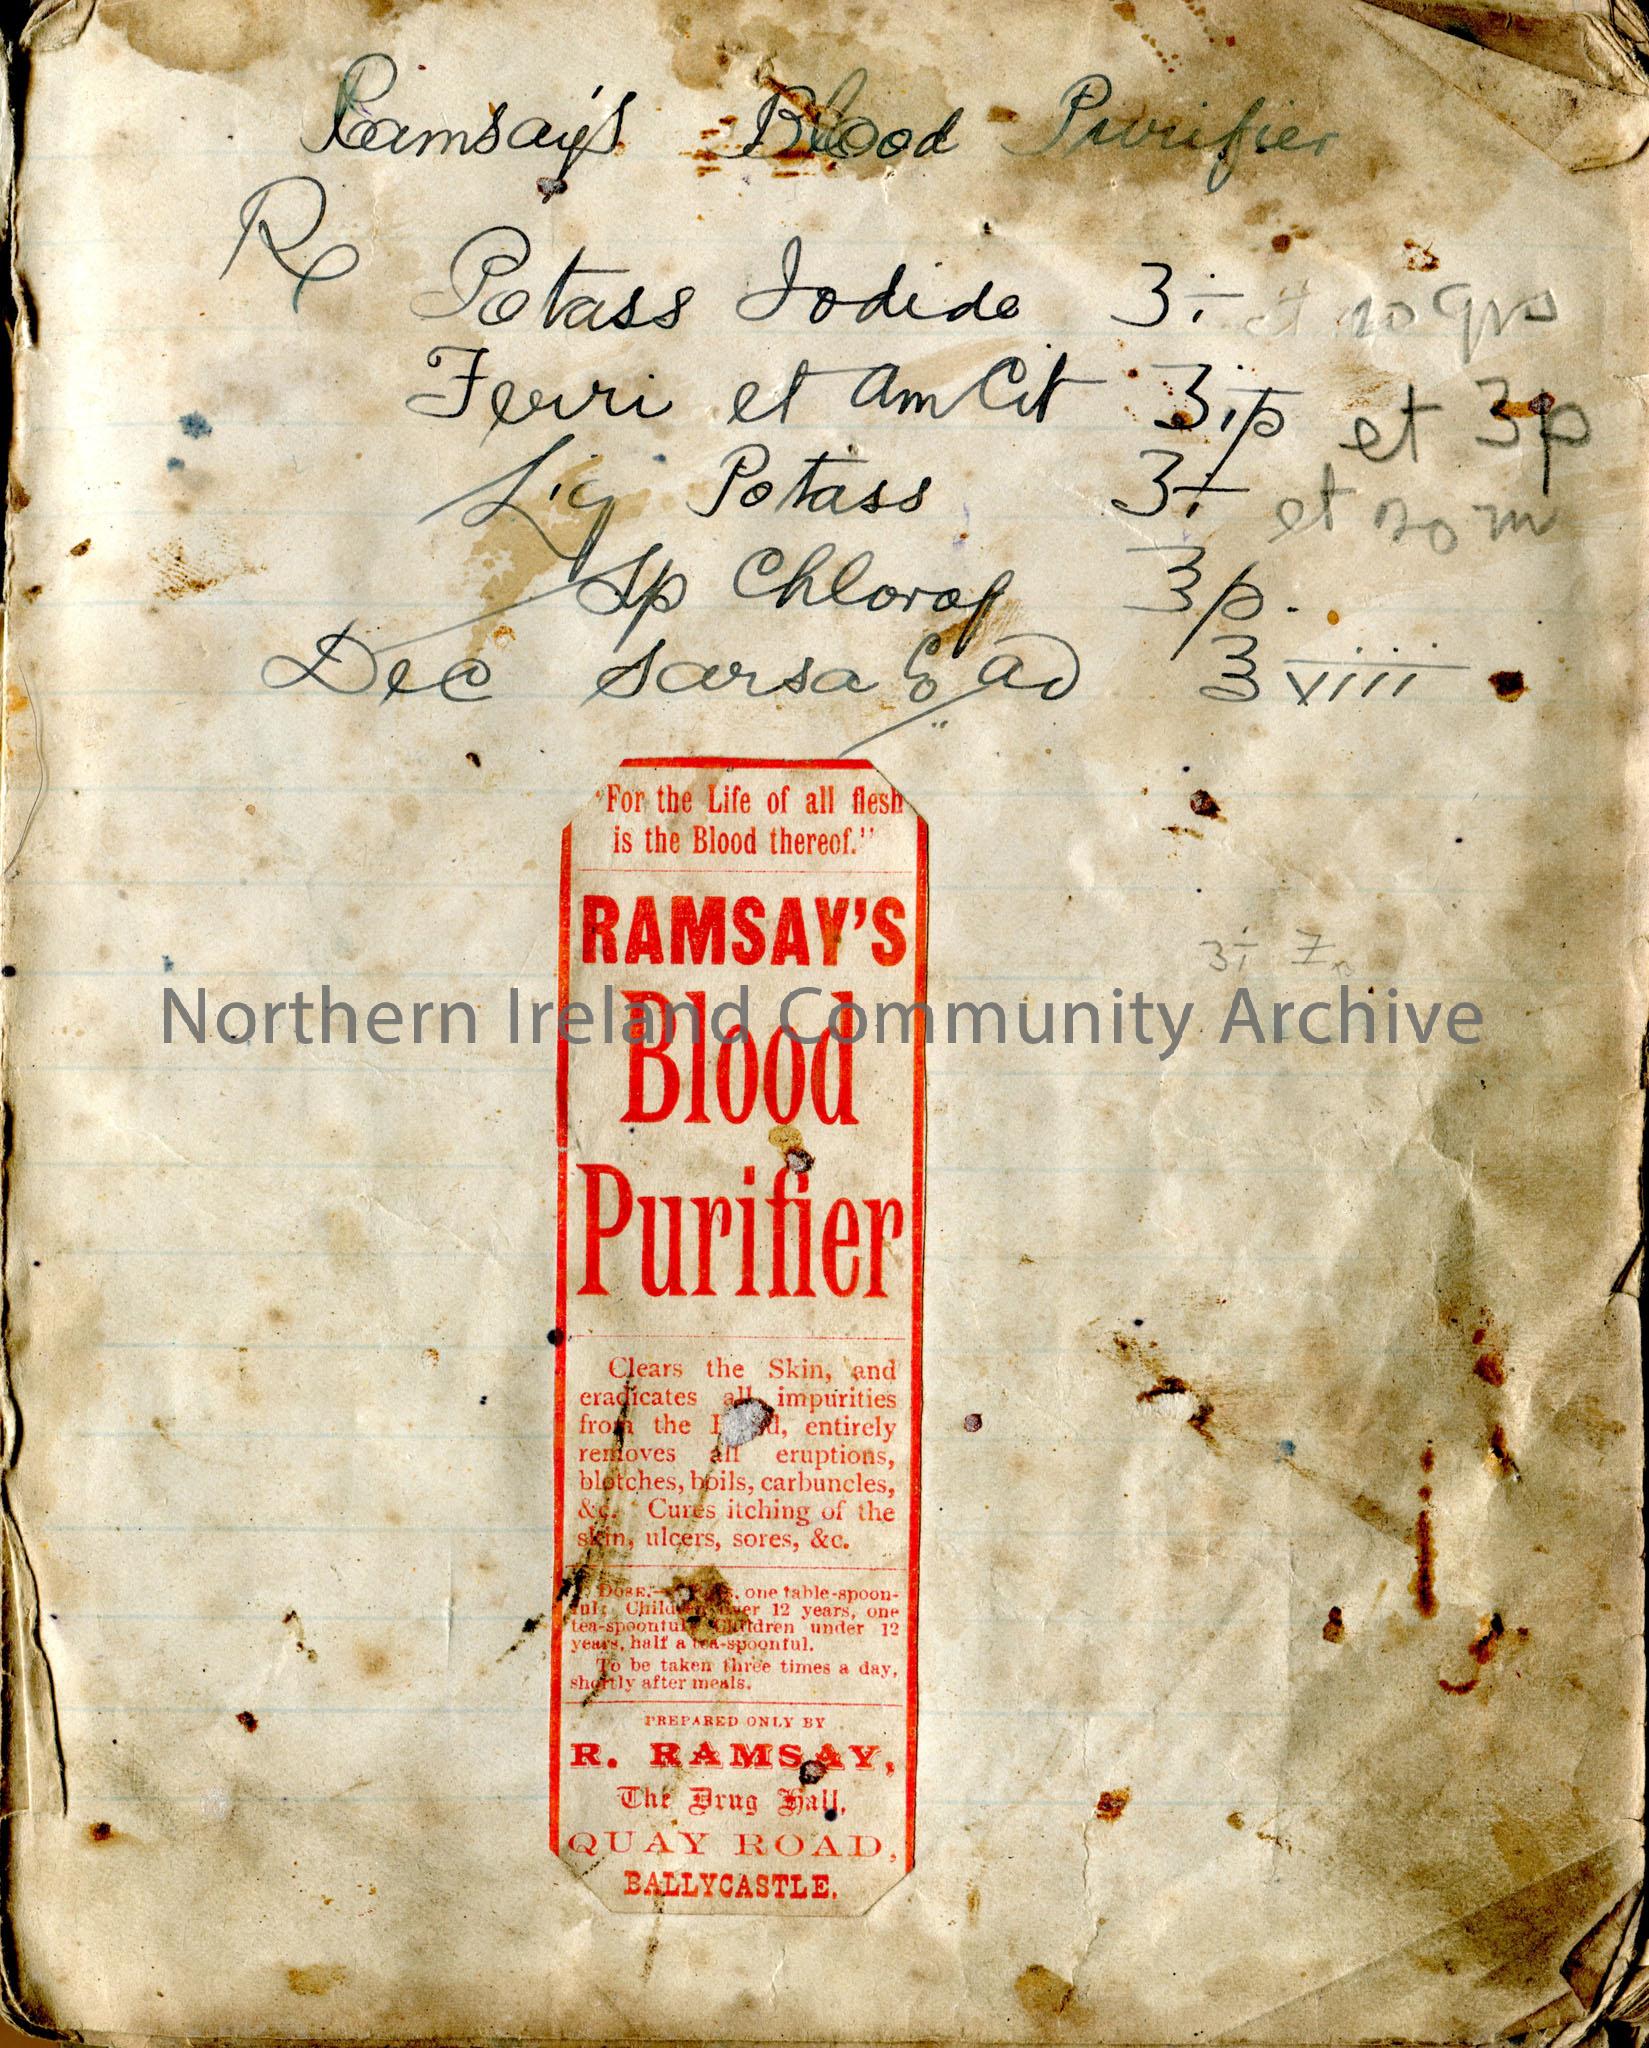 Ramsay's Blood Purifier
Rx Potass Iodide ʒi et 20 grs
Ferri et Am Cit ʒip et ʒp
Liq Potass ʒi et 20 m
Sp Chlorof ʒp.
Dec Sarsa Co ad ℥viii
"For the Life of all flesh
is the Blood thereof."
RAMSAY'S
ʒi
Northern Ireland Community Archive
Blood
Purifier
Clears the Skin, and
eradicates all impurities
from the Blood, entirely
removes all eruptions,
blotches, boils, carbuncles,
&c. Cures itching of the
skin, ulcers, sores, &c.
DOSE.— one table-spoon-
ful; Children over 12 years, one
tea-spoonful; Children under 12
years, half a tea-spoonful.
To be taken three times a day,
shortly after meals.
PREPARED ONLY BY
R. RAMSAY,
The Drug Hall,
QUAY ROAD,
BALLYCASTLE.